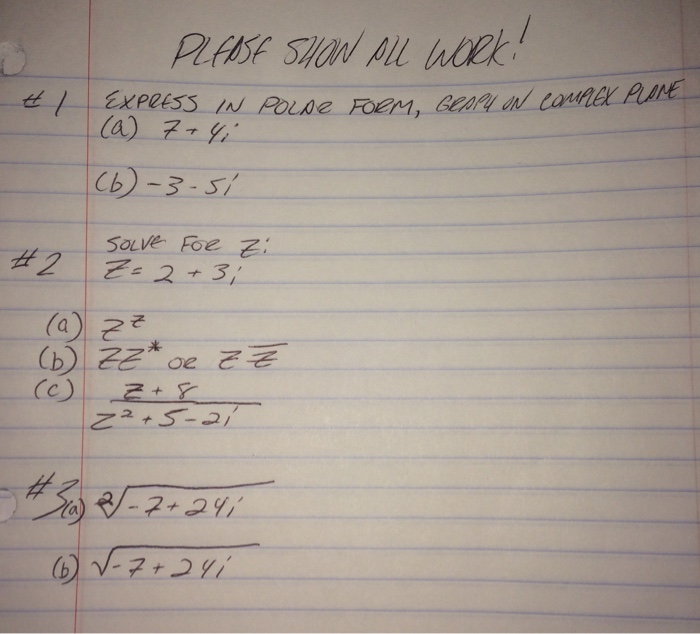 PLEASE SHOW ALL WORK!
#1 EXPRESS IN POLAR FORM, GRAPH ON COMPLEX PLANE
(a) 7+4i
(b) -3-5i
#2 SOLVE FOR Z:
Z = 2 + 3i
(a) z^z
(b) ZZ* OR Z Z̅
(c) z + 8
z² + 5 - 2i
#3(a) ²√-7+24i
(b) √-7+24i